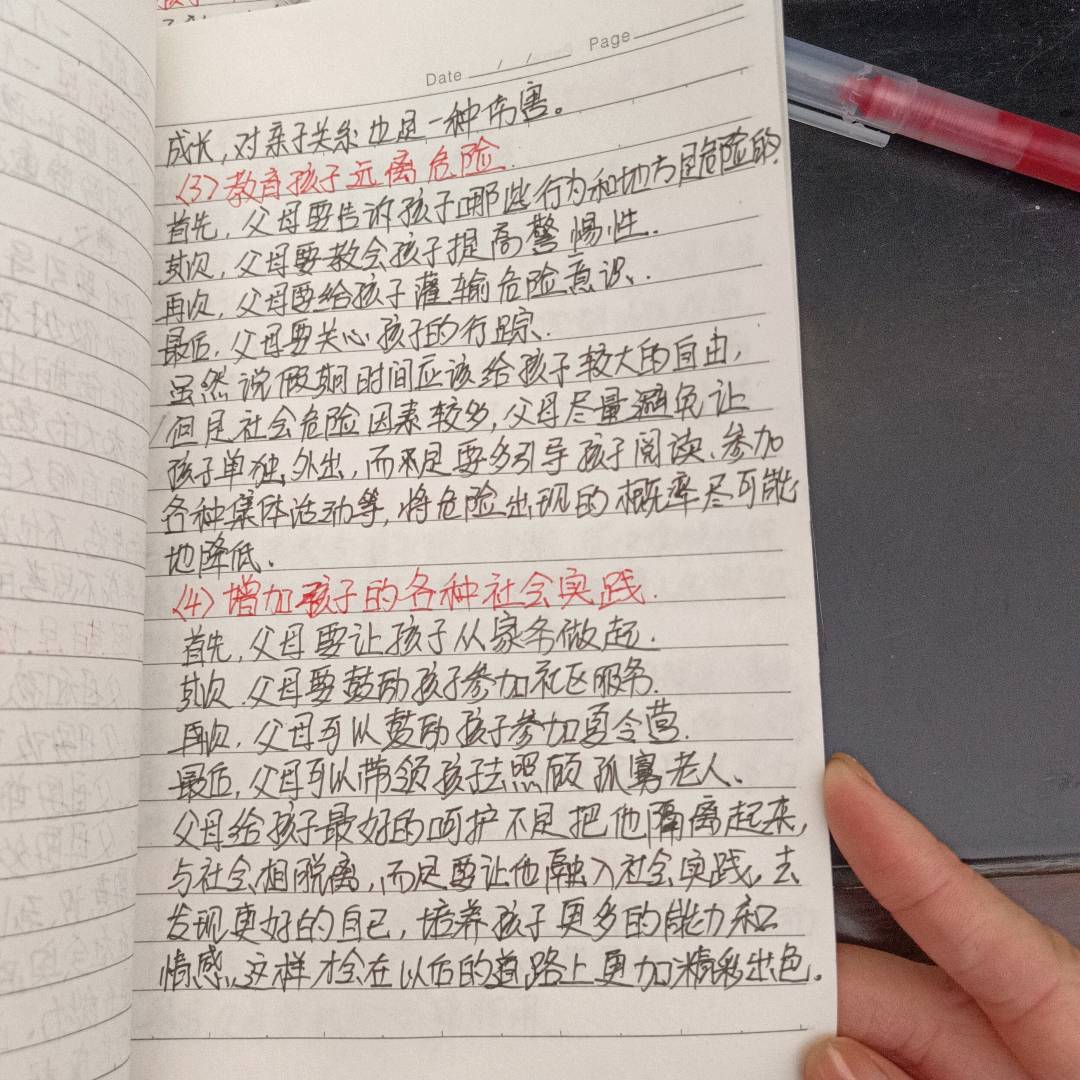 Date / / Page
成长,对亲子关系也是一种伤害。
(3)教育孩子远离危险.
首先,父母要告诉孩子哪些行为和地方是危险的.
其次,父母要教会孩子提高警惕性.
再次,父母要给孩子灌输危险意识.
最后,父母要关心孩子的行踪.
虽然说假期时间应该给孩子较大的自由,
但是社会危险因素较多,父母尽量避免让
孩子单独外出,而不是要多引导孩子阅读、参加
各种集体活动等,将危险出现的概率尽可能
地降低.
(4)增加孩子的各种社会实践.
首先,父母要让孩子从家务做起.
其次.父母要鼓励孩子参加社区服务.
再次,父母可以鼓励孩子参加夏令营.
最后,父母可以带领孩子去照顾孤寡老人、
父母给孩子最好的呵护不是把他隔离起来,
与社会相脱离,而是要让他融入社会实践,去
发现更好的自己,培养孩子更多的能力和
情感,这样才会在以后的道路上更加精彩出色。